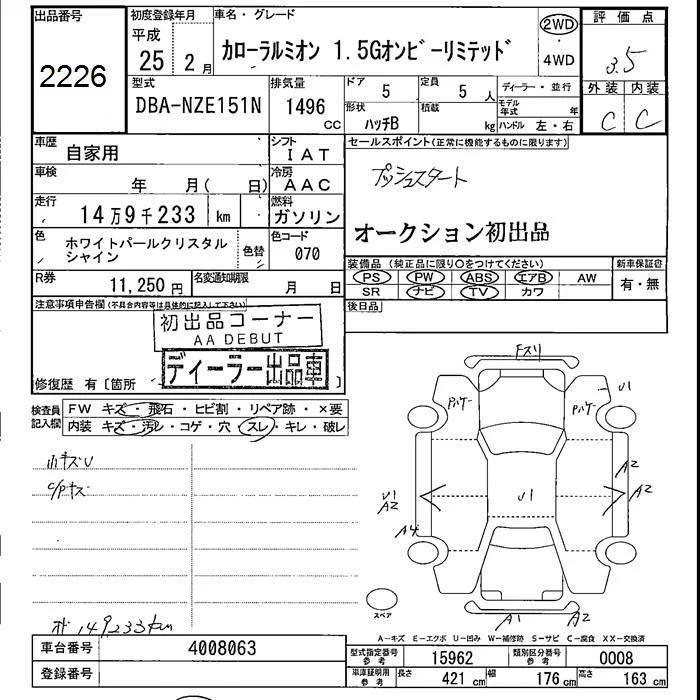 出品番号
2226
初度登録年月
平成
25 2月
車名・グレード
カローラルミオン 1.5Gオンビーリミテッド
2WD
・
4WD
評価点
3.5
外装 内装
C C
型式
DBA-NZE151N
排気量
1496
CC
ドア 5
形状 ハッチB
定員 5 人
積載 kg
ディーラー・並行
モデル年式 年
ハンドル 左・右
車歴 自家用
シフト IAT
車検 年 月( 日)
冷房 AAC
走行 14万9千233 km
燃料 ガソリン
色 ホワイトパールクリスタル
シャイン
色替
色コード 070
R券 11,250円
名変通知期限 月 日
セールスポイント(正常に機能するものに限ります)
プッシュスタート
オークション初出品
装備品(純正品に限り○をつけてください)
PS PW ABS エアB AW
SR ナビ TV カワ
新車保証書
有・無
後日品
注意事項申告欄(不具合内容等は具体的に記入して下さい)
初出品コーナー
AA DEBUT
ディーラー出品車
修復歴 有〔箇所 〕
検査員記入欄
FW キズ・飛石・ヒビ割・リペア跡・×要
内装 キズ・汚レ・コゲ・穴・スレ・キレ・破レ
小キズU
C/Pキズ
Fスリ
Pハゲー
Pハゲー
U1
A2
A2
U1
A2
U1
A4
スペア
A1
A2
オド 149233km
A−キズ E−エクボ U−凹み W−補修跡 S−サビ C−腐食 XX−交換済
車台番号 4008063
登録番号
型式指定番号参考 15962
類別区分番号参考 0008
車庫証明用参考 長さ 421cm 幅 176cm 高さ 163cm